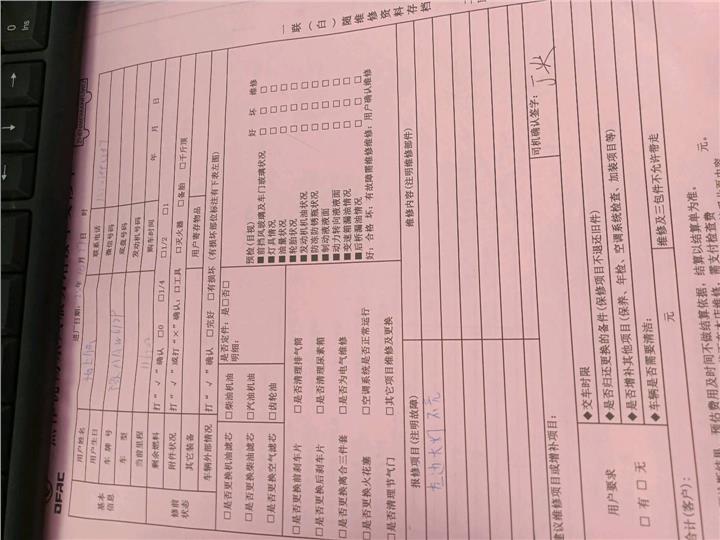 一联(白)随维修资料存档
DFAC
进厂日期: 年 月 日 时
基本信息
用户姓名
联系电话
用户生日
微信号码
车牌号
底盘号码
车型
发动机号码
当前里程
购车时间 年 月 日
修前状态
剩余燃料 打“√”确认 □0 □1/4 □1/2 □1
附件状况 打“√”或打“×”确认:□工具 □灭火器 □备胎 □千斤顶
其它装备
用户寄存物品
车辆外部情况 打“√”确认 □完好 □有损坏(有损坏部位标注有下表左图)
□是否更换机油滤芯 □柴油机油
□是否更换柴油滤芯 □汽油机油
□是否更换空气滤芯 □齿轮油
是否定件:是□否□
明细:
□是否更换前刹车片 □是否清理排气筒
□是否更换后刹车片 □是否清理尿素箱
□是否更换离合三件套 □是否为电气维修
□是否更换火花塞 □空调系统是否正常运行
□是否清理节气门 □其它项目维修及更换
预检(目视) 好 坏 维修
■前挡风玻璃及车门玻璃状况 □ □ □
■灯具情况 □ □ □
■油量状况 □ □ □
■轮胎状况 □ □ □
■发动机机油状况 □ □ □
■防冻防锈瓶状况 □ □ □
■制动液液面 □ □ □
■动力转向液液面 □ □ □
■变速箱漏油情况 □ □ □
■后桥漏油情况 □ □ □
好:合格 坏:有故障需维修维修:用户确认维修
报修项目(注明故障)
维修内容(注明维修部件)
左边大灯不亮
建议维修项目或增补项目:
司机确认签字:
用户要求
□有 □无
◆交车时限
◆是否归还更换的备件(保修项目不退还旧件)
◆是否增补其他项目(保养、年检、空调系统检查、加装项目等)
◆车辆是否需要清洁:
维修及三包件不允许带走
合计(客户): 元
预估费用及时间不做结算依据,结算以结算单为准。
需支付检查费 元。